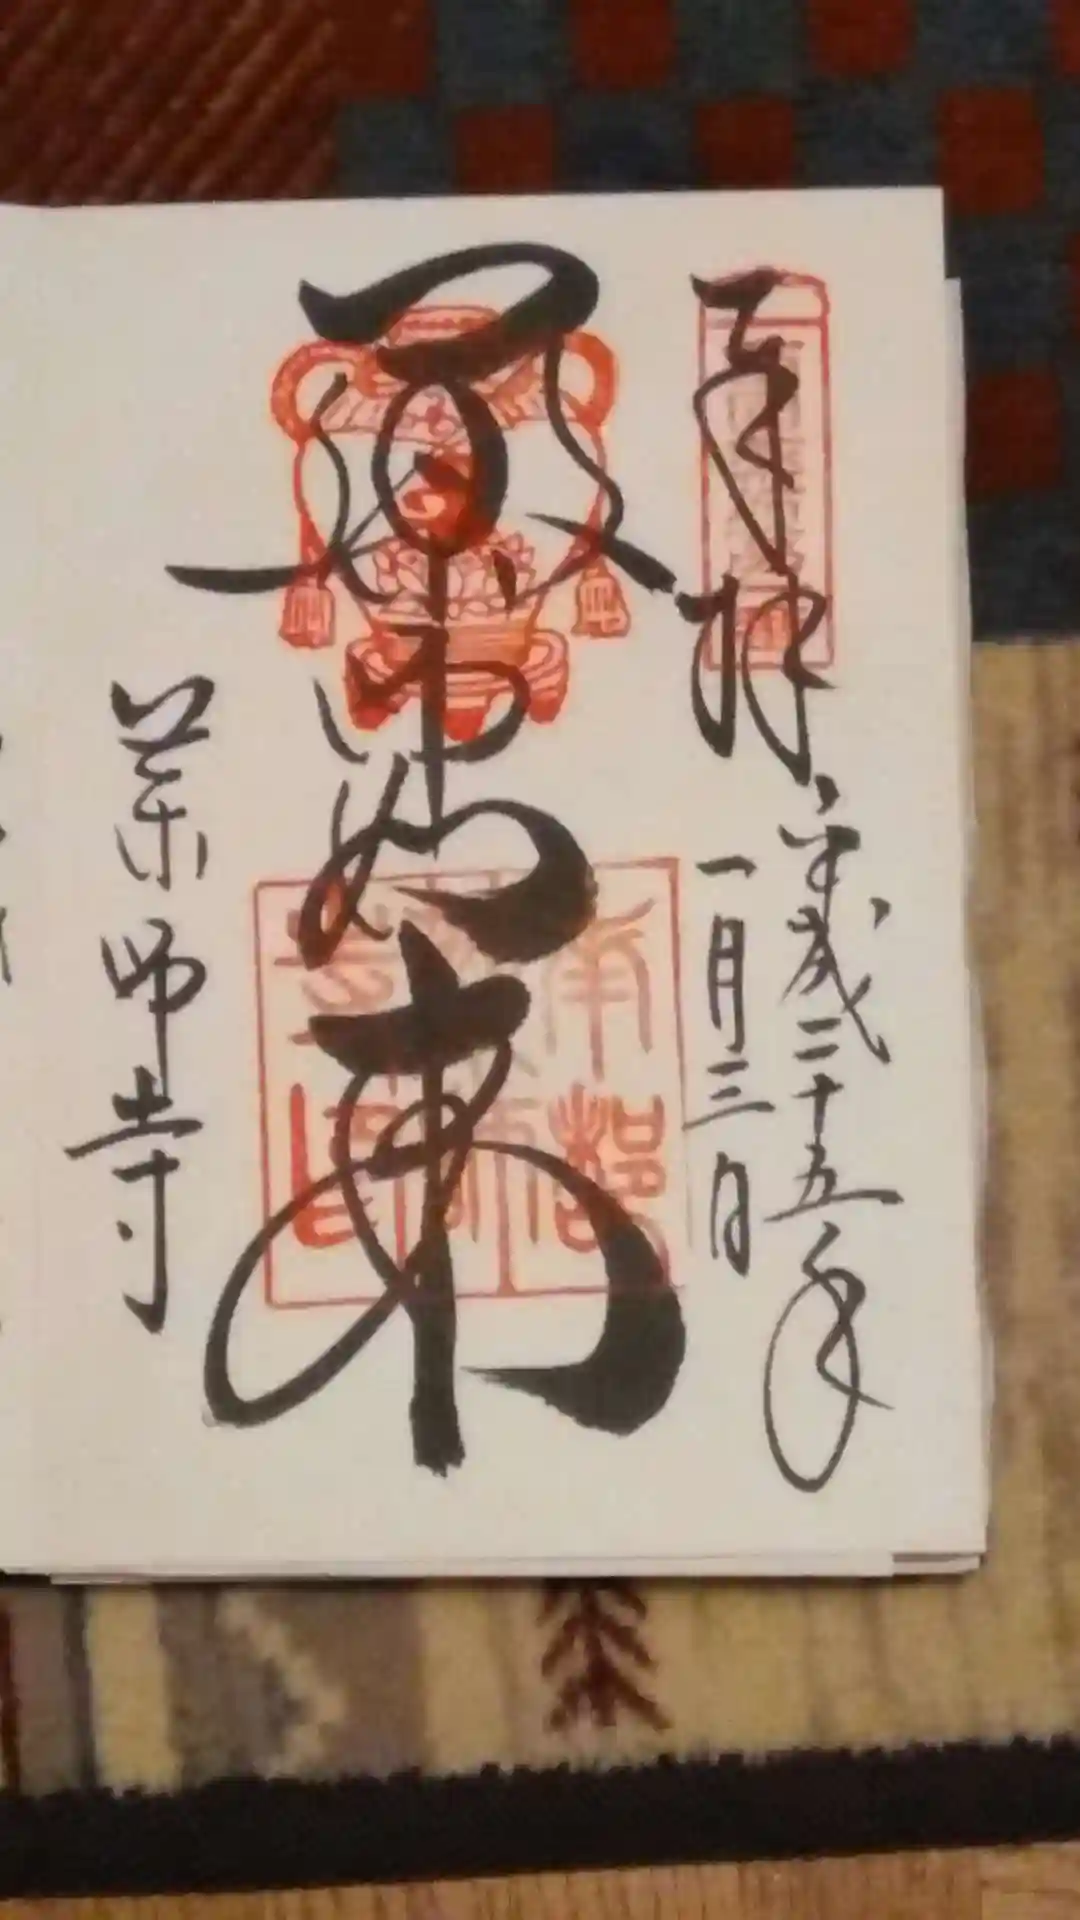 奉拝
平成二十五年
一月三日
薬師如来
薬師寺